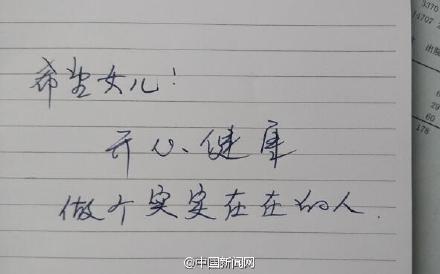 希望女儿！
开心、健康
做个实实在在的人.
3370
14707
出版
60
29
60
178
@中国新闻网